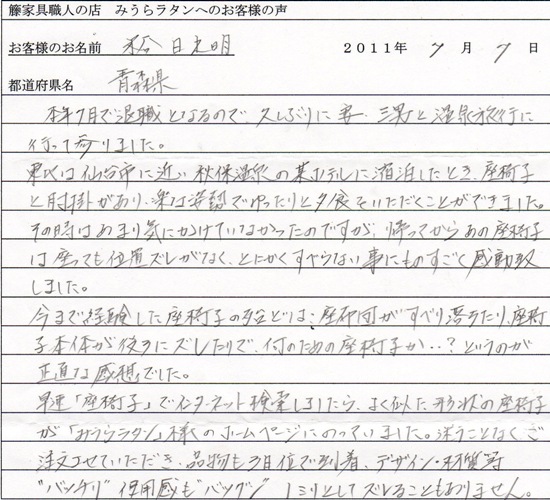 籐家具職人の店 みうらラタンへのお客様の声
お客様のお名前 松田光明 2011年 7月 7日
都道府県名 青森県
本年7月で退職となるので、久しぶりに妻、三男と温泉旅行に
行って参りました。
宿は仙台市に近い秋保温泉の某ホテルに宿泊したとき、座椅子
と肘掛があり、楽な姿勢でゆったりと夕食をいただくことができました。
その時はあまり気にかけていなかったのですが、帰ってからあの座椅子
は座っても位置ズレがなく、とにかくすべらない事にものすごく感動致
しました。
今まで経験した座椅子の殆どは、座布団がすべり落ちたり、座椅
子本体が後ろにズレたりで、何のための座椅子か‥?というのが
正直な感想でした。
早速「座椅子」でインターネット検索しましたら、よく似た形状の座椅子
が「みうらラタン」様のホームページにのっていました。迷うことなくご
注文させていただき、品物も3日位で到着、デザイン・材質等
"バッチリ" 使用感も"バツグン" 1ミリとしてズレることもありません。